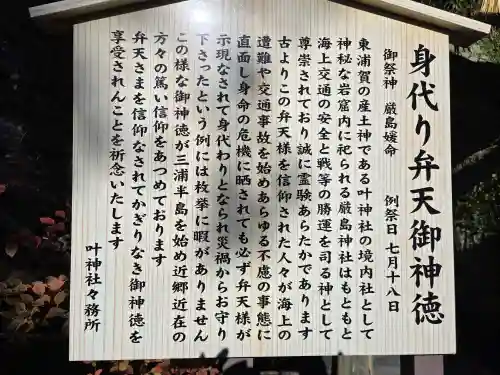 身代り弁天御神徳
御祭神　厳島媛命　例祭日 七月十八日
東浦賀の産土神である叶神社の境内社として
神秘な岩窟内に祀られる厳島神社はもともと
海上交通の安全と戦等の勝運を司る神として
尊崇されており誠に霊験あらたかであります
古よりこの弁天様を信仰された人々が海上の
遭難や交通事故を始めあらゆる不慮の事態に
直面し身命の危機に晒されても必ず弁天様が
示現なされて身代わりとなられ災禍からお守り
下さったという例には枚挙に暇がありません
この様な御神徳が三浦半島を始め近郷近在の
方々の篤い信仰をあつめております
弁天さまを信仰なされてかぎりなき御神徳を
享受されんことを祈念いたします
叶神社々務所